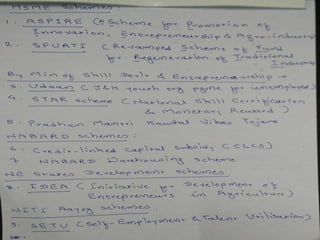 MSME Schemes:
1. ASPIRE (Scheme for Promotion of
Innovation, Entrepreneurship & Agro-industry
2. SFURTI (Revamped Scheme of Fund
for Regeneration of Traditional
Industries
By Min of Skill Devlt & Entrepreneurship →
3. Udaan (J&K youth org pgme for unemployed)
4. STAR scheme (National Skill Certification
& Monetary Reward)
5. Pradhan Mantri Kaushal Vikas Yojana
NABARD schemes:
6. Credit-linked capital subsidy (CLCS)
7. NABARD Warehousing Scheme
NE States Development schemes
8. IDEA (Initiative for Development of
Entrepreneurs in Agriculture)
NITI Aayog schemes:
9. SETU (Self-Employment & Talent Utilisation)